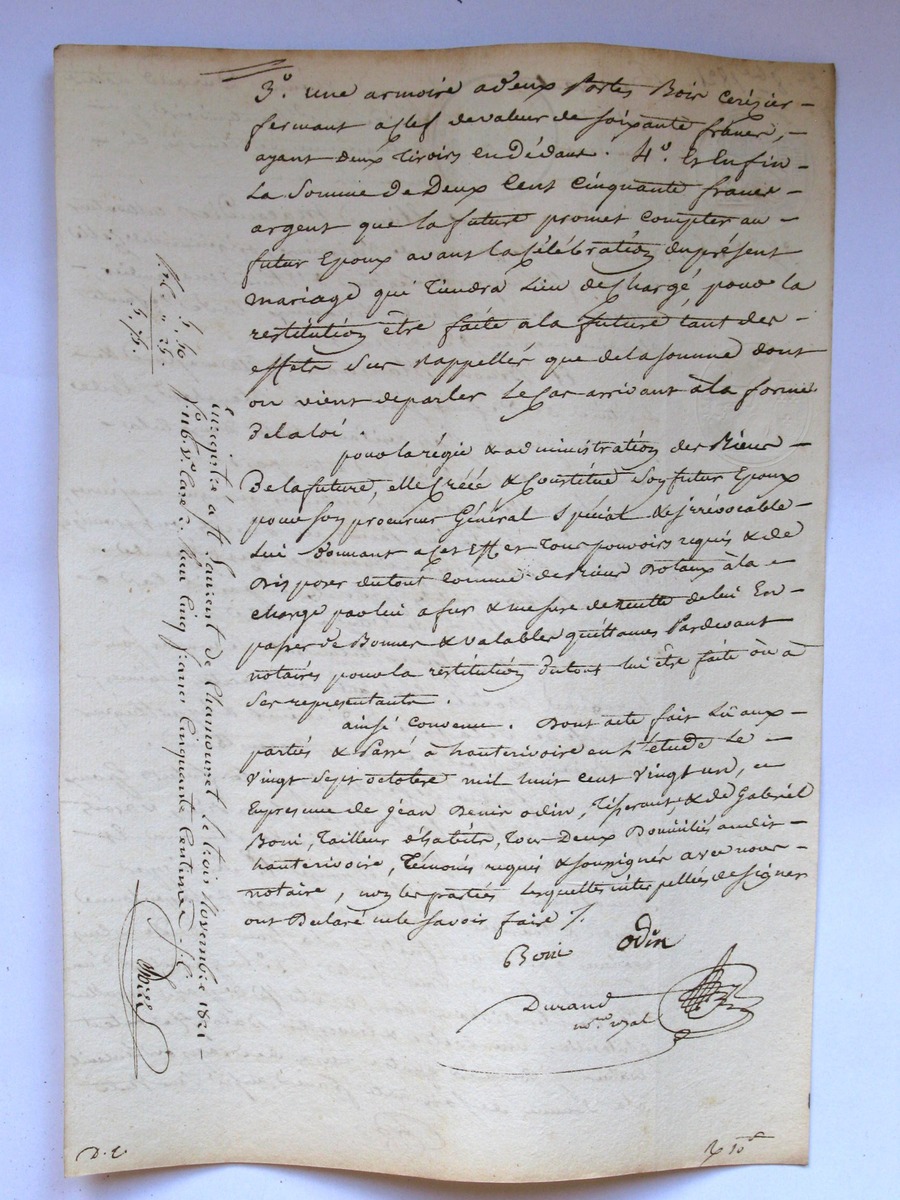 3.° une armoire a deux Portes Bois Cerizier -
fermant a Clef de valeur de soixante francs, -
ayant deux Tiroirs en dédans. 4.° Et Enfin -
La Somme de Deux Cent Cinquante francs -
argent que la future promet Compter au -
futur Epoux avant la Célébration du présent
mariage qui Tiendra Lieu de Chargé, pour la
restitution être faite a la future tant des -
effets Sus rappellés que de la somme dont
on vient de parler Le Cas arrivant à la forme
De la loi.
pour la régie & administration des Biens -
De la future, elle Créée & Constitué Son futur Epoux
pour son procureur Général Spécial & irrévocable
Lui Donnant a Cet Effet Tous pouvoirs requis & de
Disposer du tout Comme de Biens Dotaux à la
Charge par lui a fur & mesure de recette de lui En -
passer de Bonnes & valables quittances Pardevant
notaires pour la restitution du tout lui être faite où à
Ses representants.
ainsé Convenu. Dont acte fait Lû aux -
partiés & Passé à hauterivoire en L'étude Le -
Vingt Sept octobre mil huit cent Vingt un, en
Enpresence de Géan Denis odin, Tisserant, & de Gabriel
Boni, Tailleur d'habits, Tous Deux Domiciliés audit -
hauterivoire, Témoins requis & soussignés avec nous -
notaire, non les partiés Lesquelles interpellées de signer
ont Declaré ne le Savoir faire /.
Boni odin
Durand
no.re royal
Enregistré a St Laurent de Chamousset le trois Novembre 1821 -
f.° 116 v.° Case 2. Reçu Cinq francs Cinquante Centimes
5. 50
5. 75.
D. E.